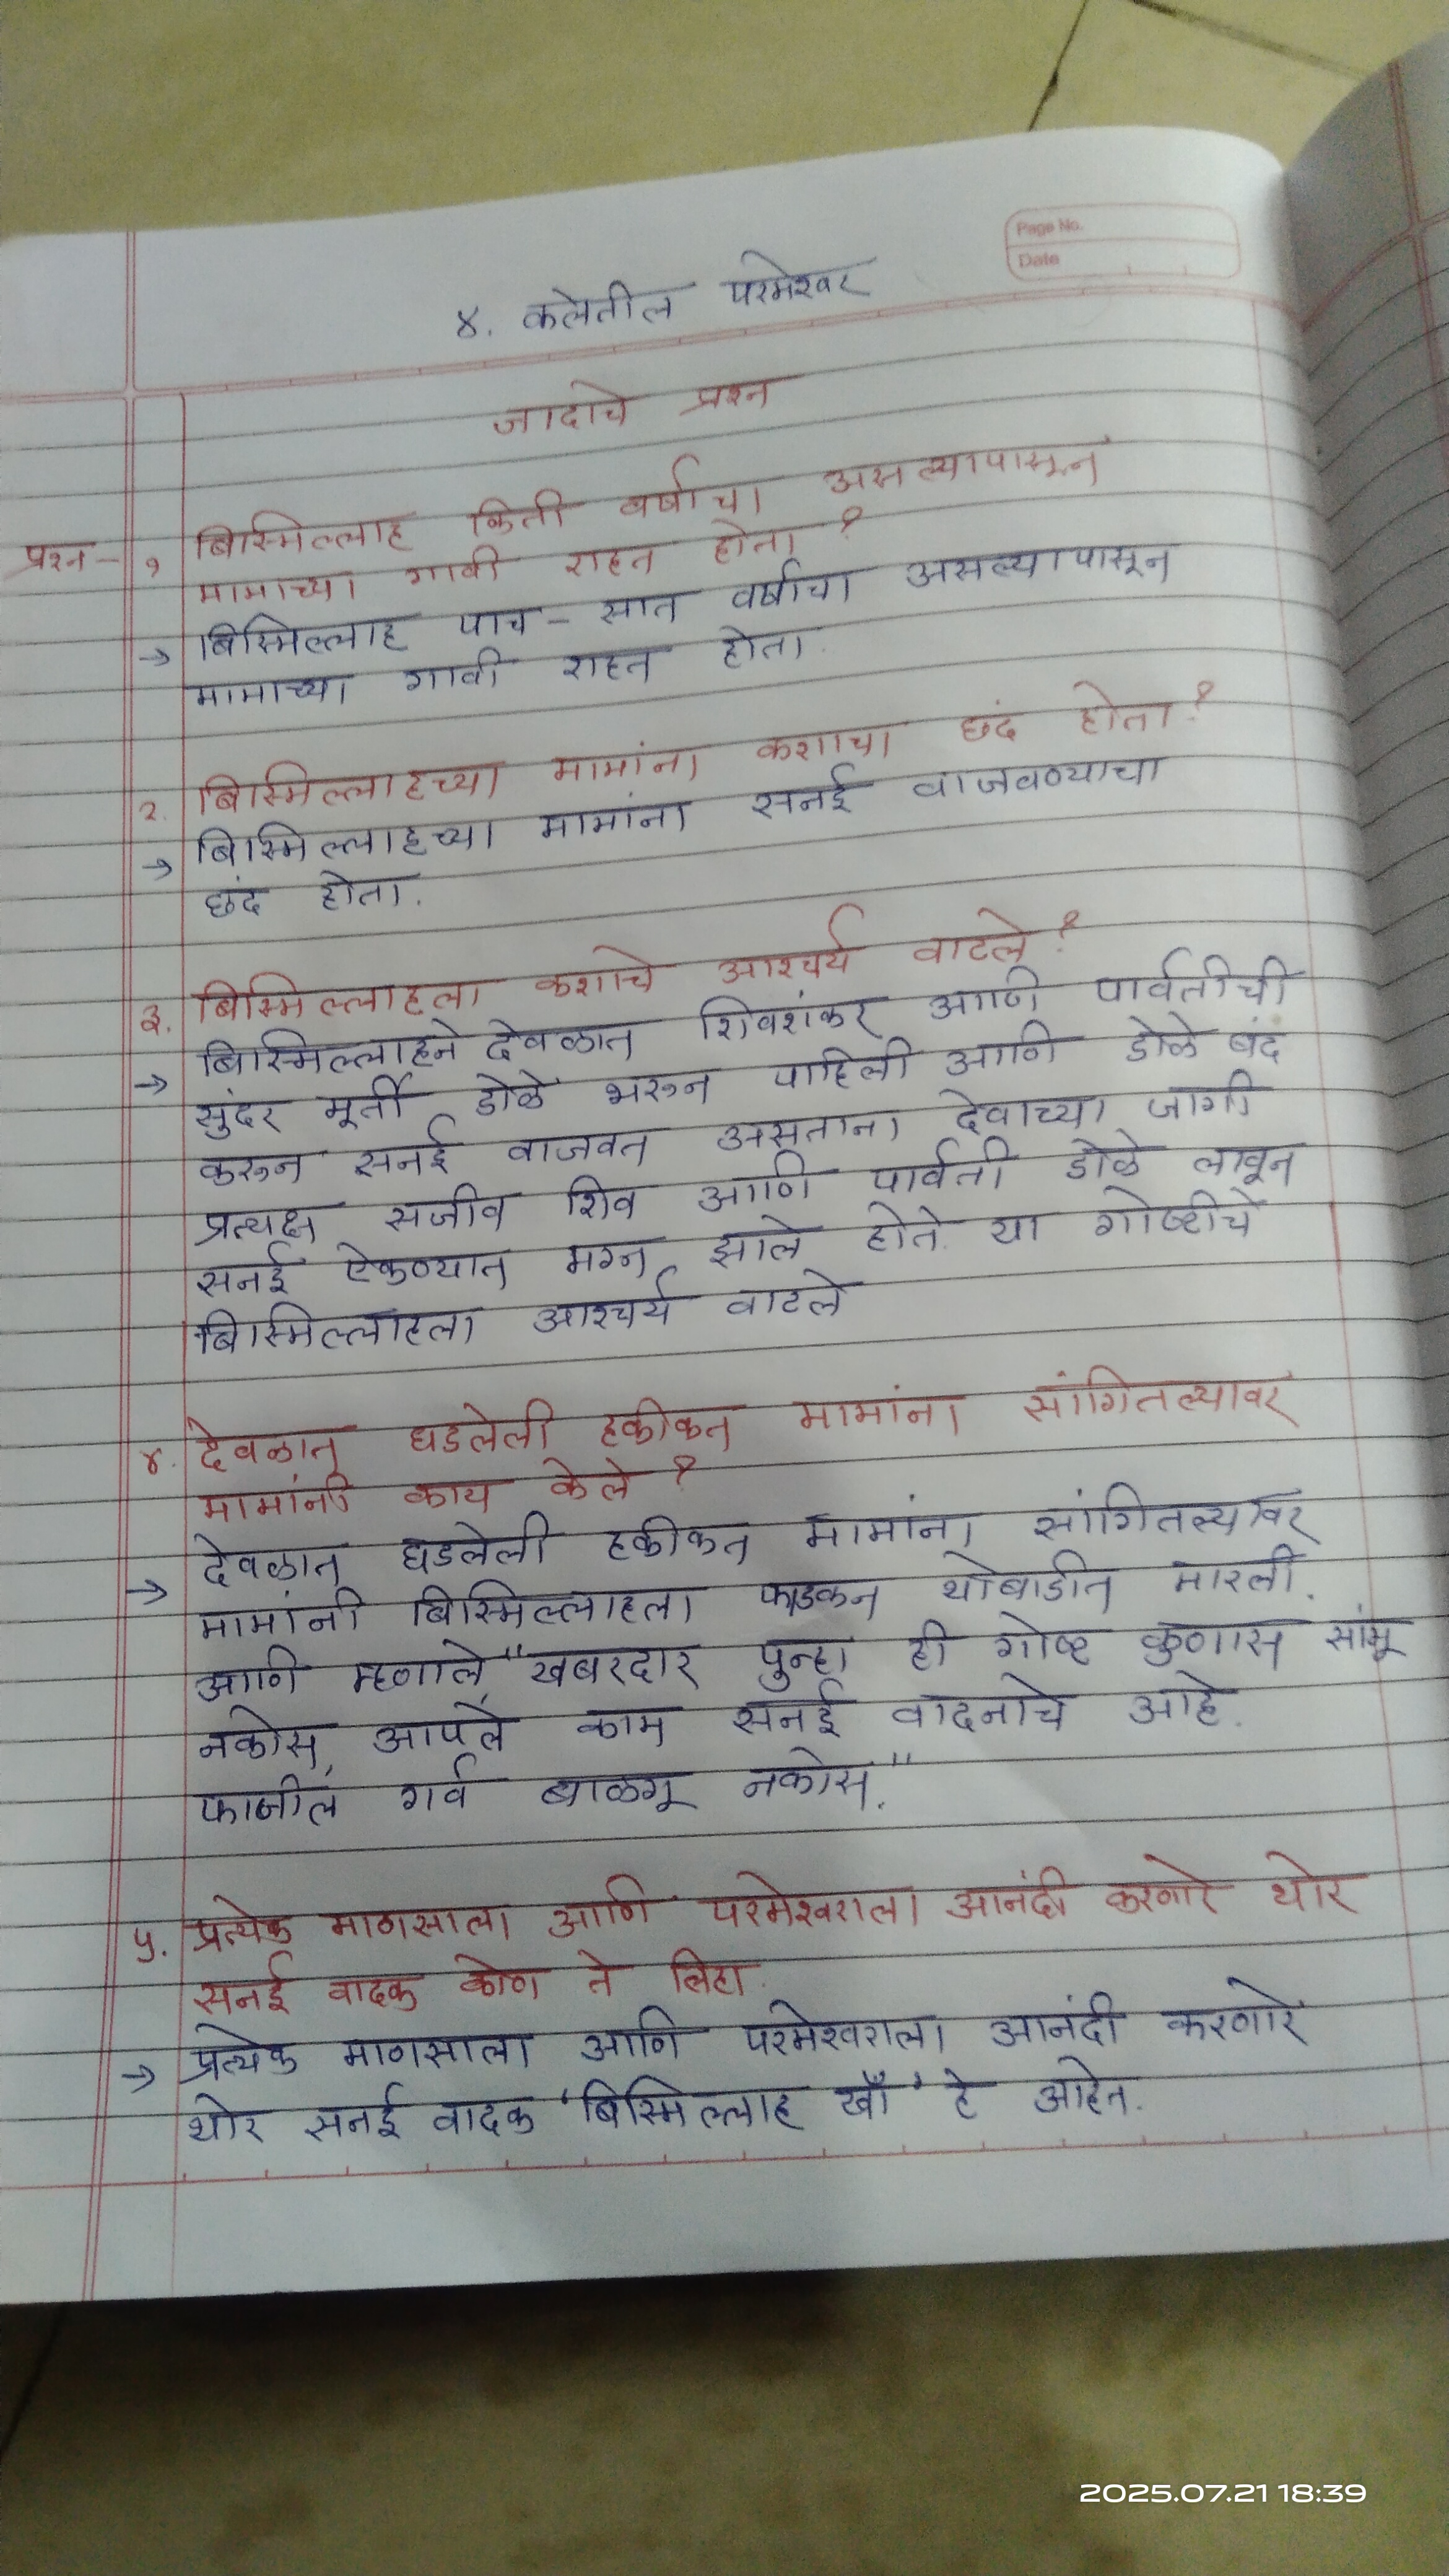 Page No.
Date
४. कलेतील परमेश्वर
जादाचे प्रश्न
प्रश्न - १ बिस्मिल्लाह किती वर्षाचा असल्यापासून
मामाच्या गावी राहत होता ?
→ बिस्मिल्लाह पाच - सात वर्षाचा असल्यापासून
मामाच्या गावी राहत होता.
२. बिस्मिल्लाहच्या मामांना कशाचा छंद होता ?
→ बिस्मिल्लाहच्या मामांना सनई वाजवण्याचा
छंद होता.
३. बिस्मिल्लाहला कशाचे आश्चर्य वाटले ?
→ बिस्मिल्लाहने देवळात शिवशंकर आणि पार्वतीची
सुंदर मूर्ती डोळे भरून पाहिली आणि डोळे बंद
करून सनई वाजवत असताना देवाच्या जागी
प्रत्यक्ष सजीव शिव आणि पार्वती डोळे लावून
सनई ऐकण्यात मग्न झाले होते. या गोष्टीचे
बिस्मिल्लाहला आश्चर्य वाटले
४. देवळात घडलेली हकीकत मामांना सांगितल्यावर
मामांनी काय केले ?
→ देवळात घडलेली हकीकत मामांना सांगितल्यावर
मामांनी बिस्मिल्लाहला फाडकन थोबाडीत मारली.
आणि म्हणाले "खबरदार पुन्हा ही गोष्ट कुणास सांगू
नकोस, आपले काम सनई वादनाचे आहे.
फाजील गर्व बाळगू नकोस."
५. प्रत्येक माणसाला आणि परमेश्वराला आनंदी करणारे थोर
सनई वादक कोण ते लिहा.
→ प्रत्येक माणसाला आणि परमेश्वराला आनंदी करणारे
थोर सनई वादक 'बिस्मिल्लाह खाँ' हे आहेत.
2025.07.21 18:39